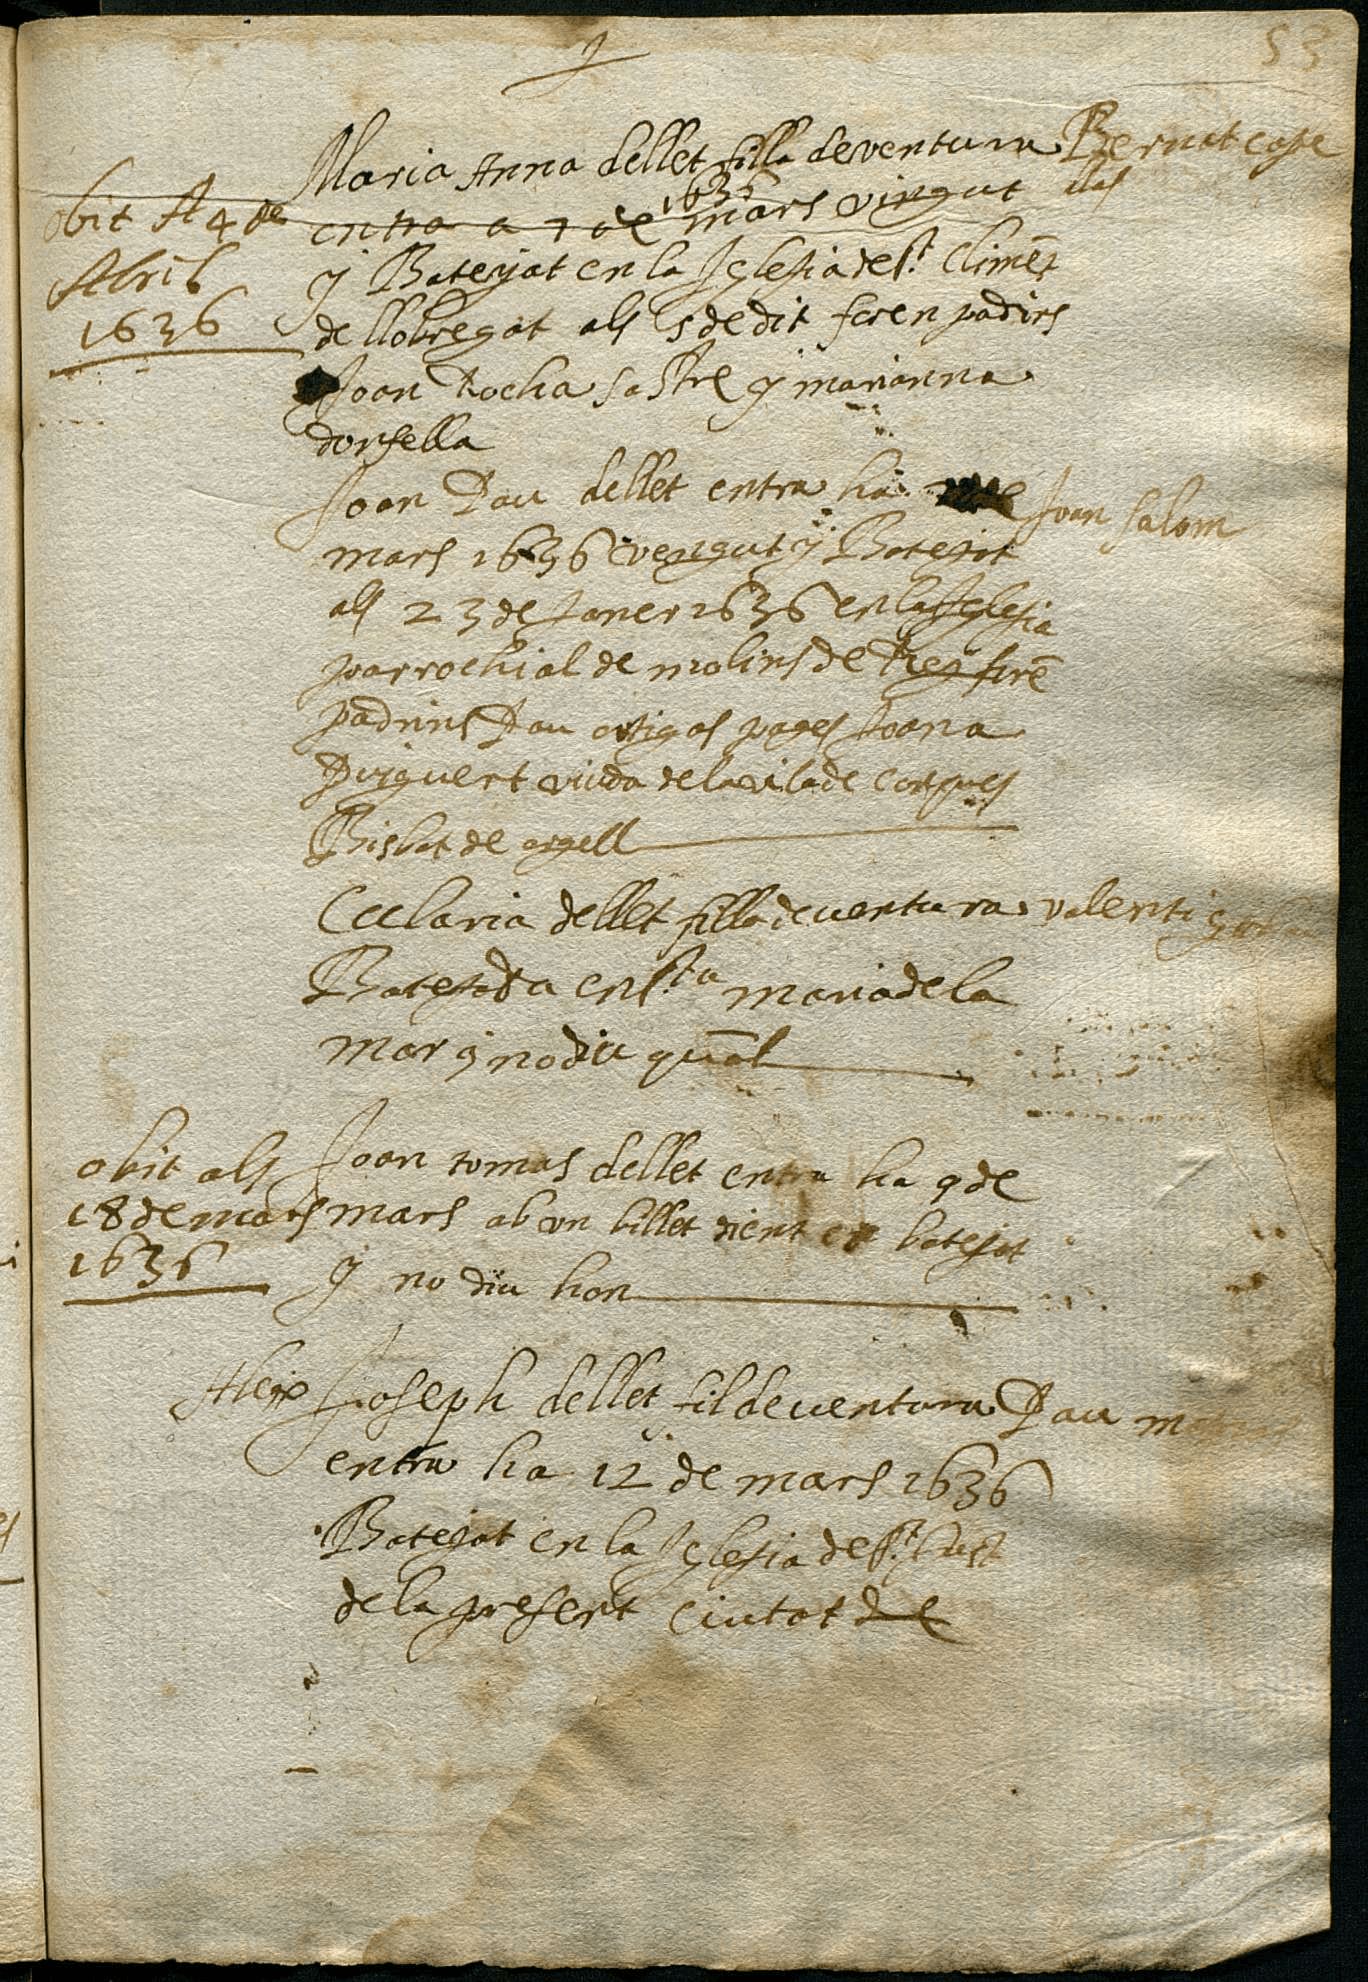 53
Maria Anna dellet filla de ventura Bernat cape
obit A 4 de
Abril
1636
entra a 7 de mars 1636 vingut
y Batejat en la Iglesia de st. Climēt
de llobregat als 5 de dit feren padins
Joan Rocha sastre y marianna
dorsella
Joan Pau dellet entra ha de Joan salom
mars 1636 vengut y Batejat
als 23 de Janer 1636 en la Iglesia
parrochial de molins de Rey forē
padrins Pau artigas pages Joana
Puiguert viuda de la vila de
Bisbat de urgell
Eularia dellet filla de ventura valenti
Batejada en sta maria de la
mar y no diu quāt
obit als
18 de mars
1636
Joan tomas dellet entra ha 9 de
mars ab vn billet dient es batejat
y no diu hon
Aleix Joseph dellet fil de ventura Pau
entra ha 12 de mars 1636
Batejat en la Iglesia de st. Just
de la present Ciutat de